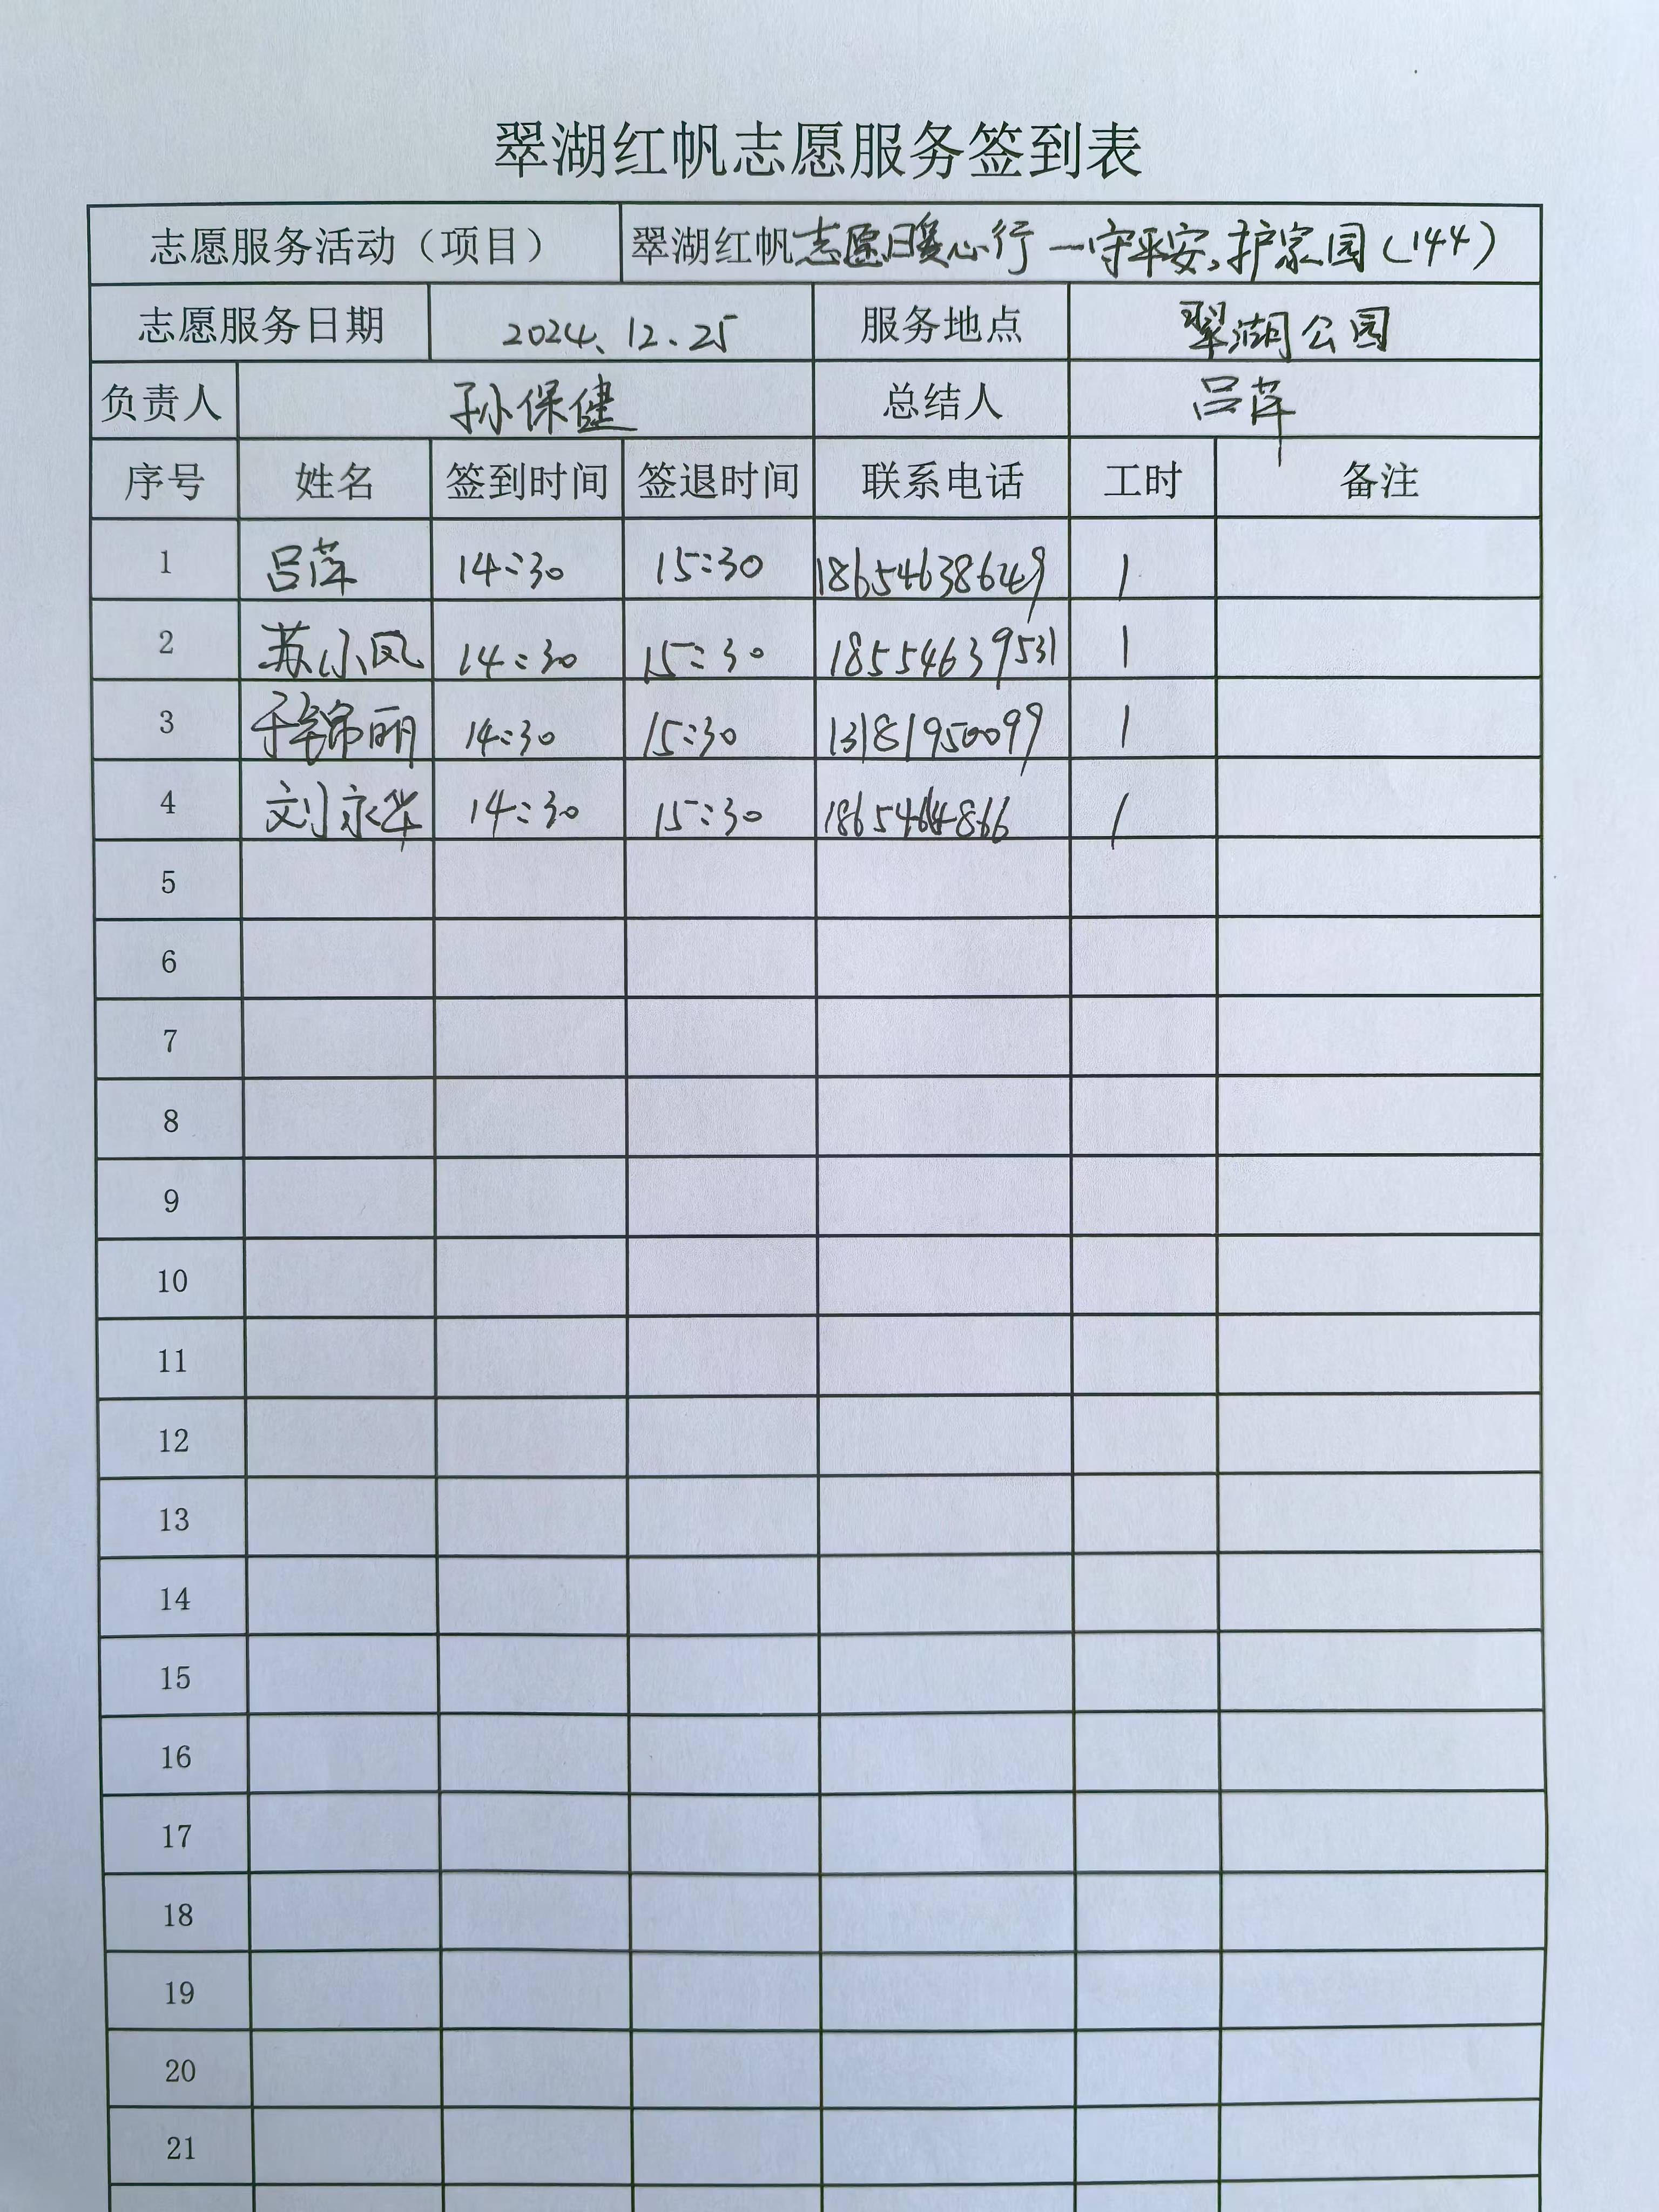 翠湖红帆志愿服务签到表
志愿服务活动（项目） 翠湖红帆志愿暖心行一守平安,护家园(144)
志愿服务日期 2024、12、25 服务地点 翠湖公园
负责人 孙保健 总结人 吕萍
序号 姓名 签到时间 签退时间 联系电话 工时 备注
1 吕萍 14:30 15:30 18654638649 1
2 苏小凤 14:30 15:30 18554639531 1
3 于锦丽 14:30 15:30 13181950099 1
4 刘永华 14:30 15:30 1
5
6
7
8
9
10
11
12
13
14
15
16
17
18
19
20
21